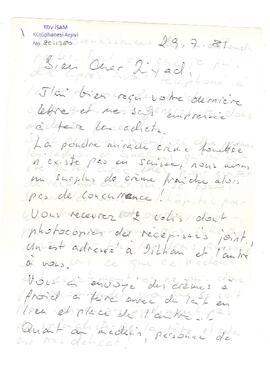 TDV İSAM
Kütüphanesi Arşivi
No
29.7.81
Bien Cher Ziyad,
J'ai bien reçu votre dernière
lettre et me suis empressée
à faire les achats.
La poudre miracle crème fouettée
n'existe pas en Suisse, nous avons
un surplus de crème fraîche alors
pas de concurrence !
Vous recevrez 2 colis dont
photocopies des récépissés joint,
un est adressé à Ilham et l'autre
à vous.
Vous ai envoyé des crèmes à
froid à faire avec du lait en
lieu et place de l'autre.
Quant au médecin, personne de